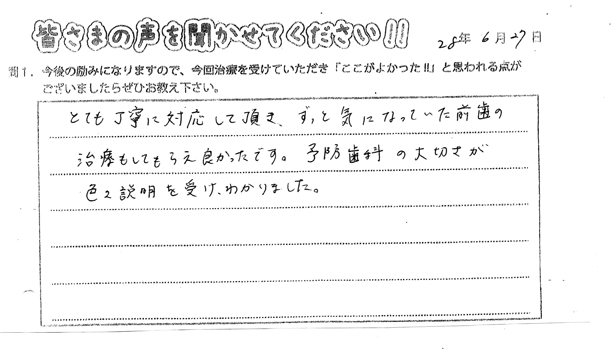 皆さまの声を聞かせてください!!
28年6月27日
問1. 今後の励みになりますので、今回治療を受けていただき「ここがよかった!!」と思われる点が
ございましたらぜひお教え下さい。
とても丁寧に対応して頂き、ずっと気になっていた前歯の
治療もしてもらえ良かったです。予防歯科の大切さが
色々説明を受け、わかりました。